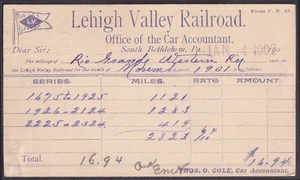 Form C. N. 32.
Lehigh Valley Railroad.
Office of the Car Accountant.
Dear Sir: South Bethlehem, Pa., JAN 4 190
The mileage of Rio Grande Western Ry.
the Lehigh Valley Railroad for the month of November 1901.
SERIES. MILES. RATE AMOUNT.
1675 to 1925 1121
1926 " 2124 1283
2225 " 2324 419
2823
Total. 16.94 $16.94
THOS. O. COLE, Car Accountant.